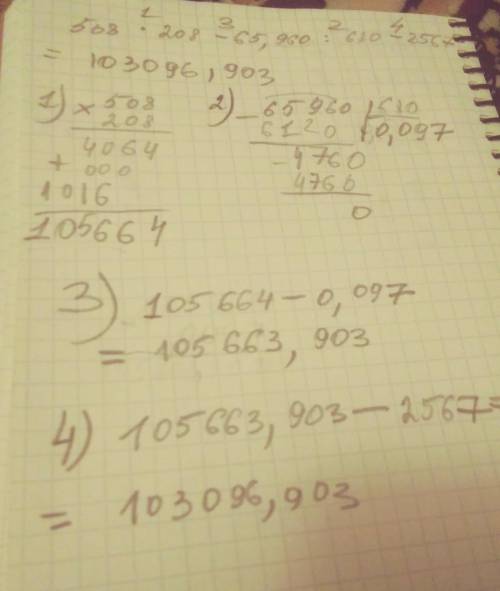 1 3 2 4
508 · 208 - 65,960 : 680 - 2567
= 103096,903
1) × 508
208
4064
+ 000
1016
105664
2) - 65960 | 680
6120 | 0,097
- 4760
4760
0
3) 105664 - 0,097
= 105663,903
4) 105663,903 - 2567 =
= 103096,903